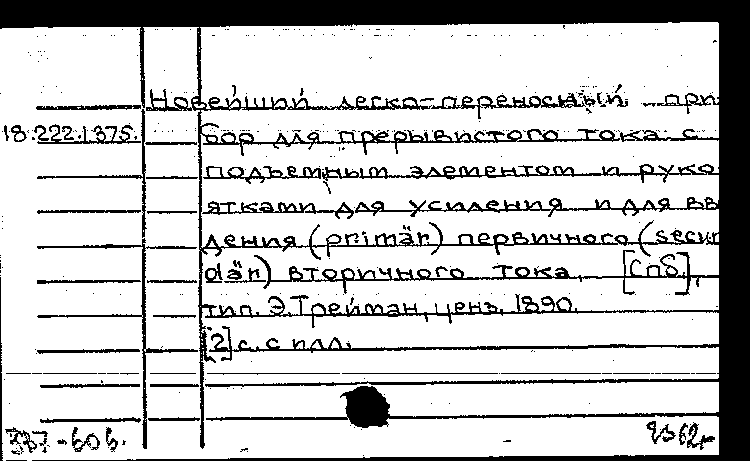 Новейший легко-переносный при
18.222.1.375. бор для прерывистого тока с
подъемным элементом и руко
ятками для усиления и для вв
дения (primär) первичного (secun
där) вторичного тока. [Спб.],
тип. Э. Трейман, ценз. 1890.
[2] с. с илл.
337-606.